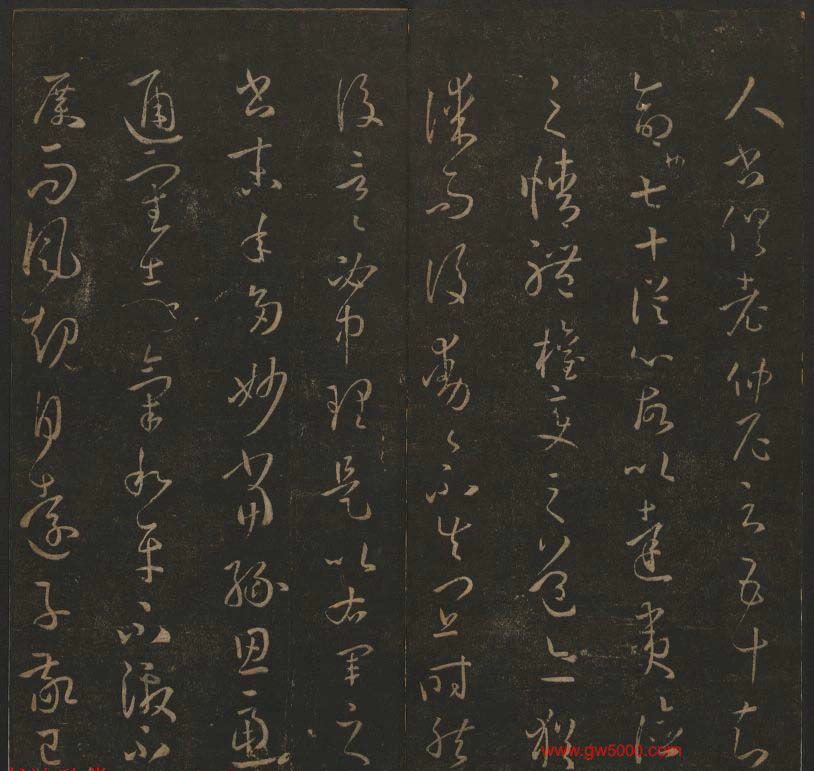 人書俱老仲尼云五十知
命七十從心故以達夷險
之情體權變之道亦猶
謀而後動々不失宜時然
後言々必中理是以右軍之
書末年多妙當緣思慮
通審志氣和平不激不
厲而風規自遠子敬已
www.gw5000.com